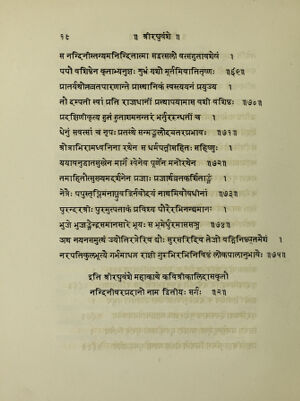 १८ ॥ श्रीरघुवंशे ॥
स नन्दिनीस्तन्यमनिन्दितात्मा सद्वत्सलो वत्सहुतावशेषं ।
पपौ वशिष्ठेन कृताभ्यनुज्ञः शुभ्रं यशो मूर्तमिवातितृष्णः ॥६९॥
प्रातर्यथोक्तव्रतपारणान्ते प्रास्थानिकं स्वस्त्ययनं प्रयुज्य ।
तौ दम्पती स्वां प्रति राजधानीं प्रस्थापयामास वशी वशिष्ठः ॥७०॥
प्रदक्षिणीकृत्य हुतं हुताशमनन्तरं भर्तुररुन्धतीं च ।
धेनुं सवत्सां च नृपः प्रतस्थे सन्मङ्गलोदग्रतरप्रभावः ॥७१॥
श्रोत्राभिरामध्वनिना रथेन स धर्मपत्नीसहितः सहिष्णुः ।
ययावनुद्घातसुखेन मार्गं स्वेनेव पूर्णेन मनोरथेन ॥७२॥
तमाहितौत्सुक्यमदर्शनेन प्रजाः प्रजार्थव्रतकर्शिताङ्गं ।
नेत्रैः पपुस्तृप्तिमनाप्नुवद्भिर्नवोदयं नाथमिवौषधीनां ॥७३॥
पुरन्दरश्रीः पुरमुत्पताकं प्रविश्य पौरैरभिनन्द्यमानः ।
भुजे भुजङ्गेन्द्रसमानसारे भूयः स भूमेर्धुरमाससञ्ज ॥७४॥
अथ नयनसमुत्थं ज्योतिरत्रेरिव द्यौः सुरसरिदिव तेजो वह्निनिष्ठ्यूतमैशं ।
नरपतिकुलभूत्यै गर्भमाधत्त राज्ञी गुरुभिरभिनिविष्टं लोकपालानुभावैः ॥७५॥
इति श्रीरघुवंशे महाकाव्ये कविश्रीकालिदासकृतौ
नन्दिनीवरप्रदानो नाम द्वितीयः सर्गः ॥२॥